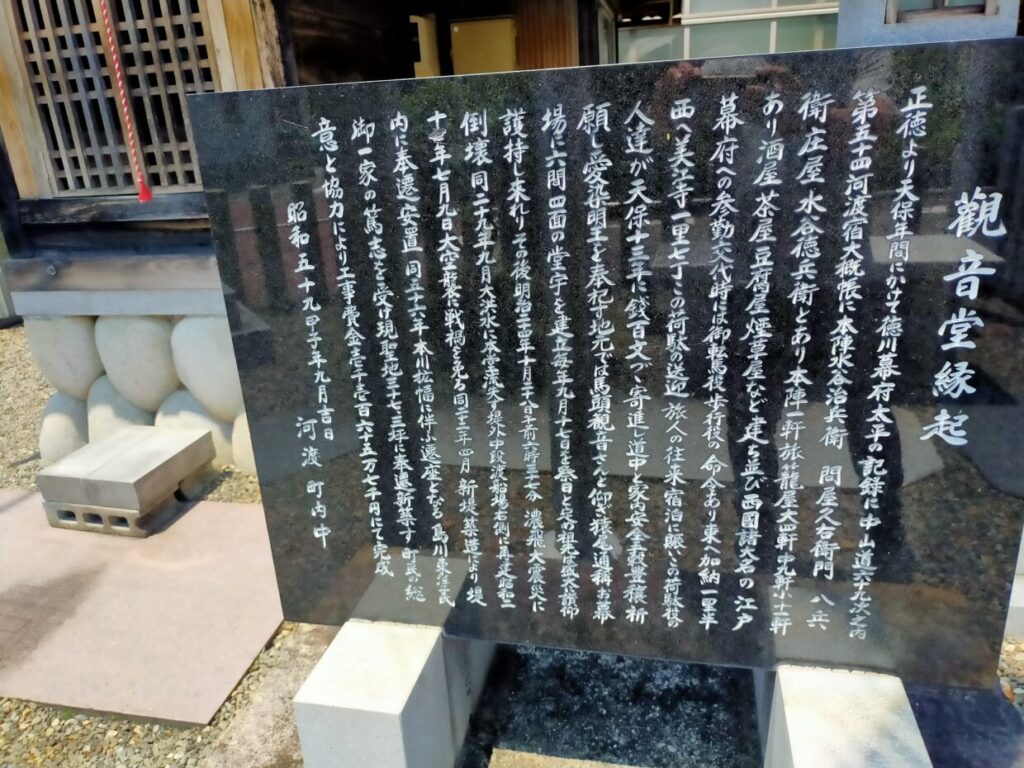 觀音堂縁起
正徳より天保年間にかけて徳川幕府太平の記録に中山道六十九次之内
第五十四河渡宿大概帳に本陣水谷治兵衛 問屋久右衛門 八兵
衛庄屋水谷徳兵衛とあり本陣一軒旅籠屋大七軒中九軒小十軒
あり酒屋茶屋豆腐屋煙草屋など建ち並び西國諸大名の江戸
幕府への参勤交代時は御転馬役歩行役の命令あり東へ加納一里半
西へ美江寺一里七丁この荷駄の送迎 旅人の往来宿泊に賑こ荷駄役の
人達が天保十三年に銭百文づゝ寄進し道中と家内安全五穀豊穣祈
願し愛染明王を奉祀す地元では馬頭観音さんと仰ぎ猿尾通稱お幕
場に六間四面の堂宇を建立毎年九月十七日を祭日と定め
護持し来れりその後明治二十四年十月二十八日午前六時三十七分 濃飛大震災に
倒壊同二九年九月大洪水に本堂流失す堤外中段渡船場右側に再建昭和二
十年七月九日大空襲に戦禍を免る同二三年四月 新堤築造より堤
内に奉遷安置同五十六年本川拡幅に伴ふ遷座となる 馬川東 氏
御一家の篤志を受け現聖地三十七・三坪に奉遷新築す町民の総
意と協力により工事費金壱千壱百六十五万七千円にて完成
昭和五十九甲子年九月吉日 河渡 町内中